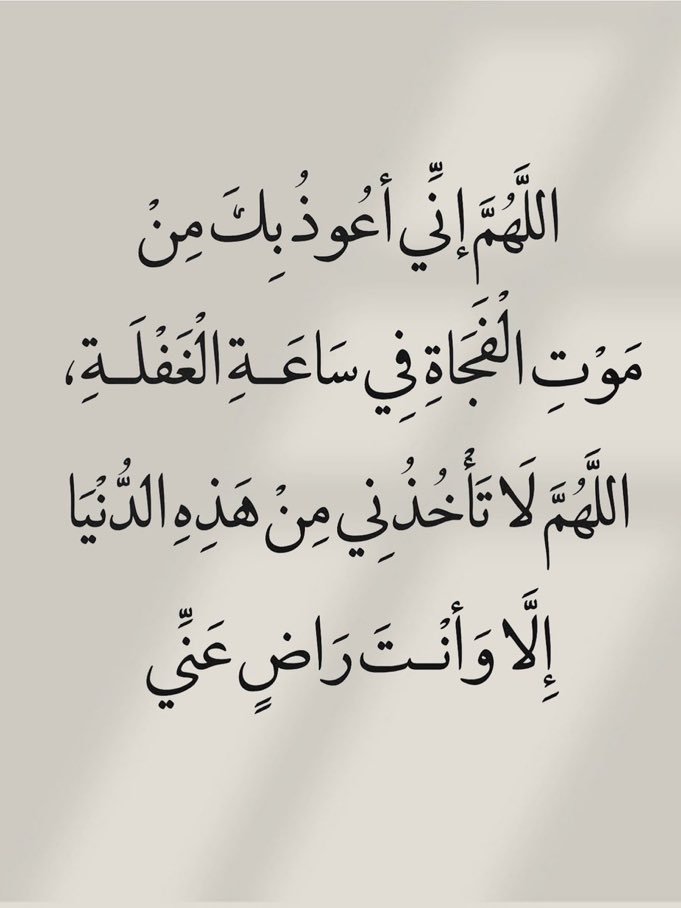 اللَّهُمَّ إنِّي أعُوذُ بِكَ مِنْ
مَوْتِ الْفَجَاةِ فِي سَاعَـةِ الْغَفْلَـةِ،
اللَّهُمَّ لَا تَأْخُذْنِي مِنْ هَذِهِ الدُّنْيَا
إِلَّا وَأنْـتَ رَاضٍ عَنِّي